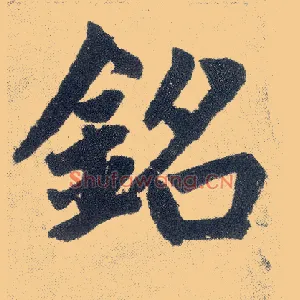 銘
Shufawang.CN